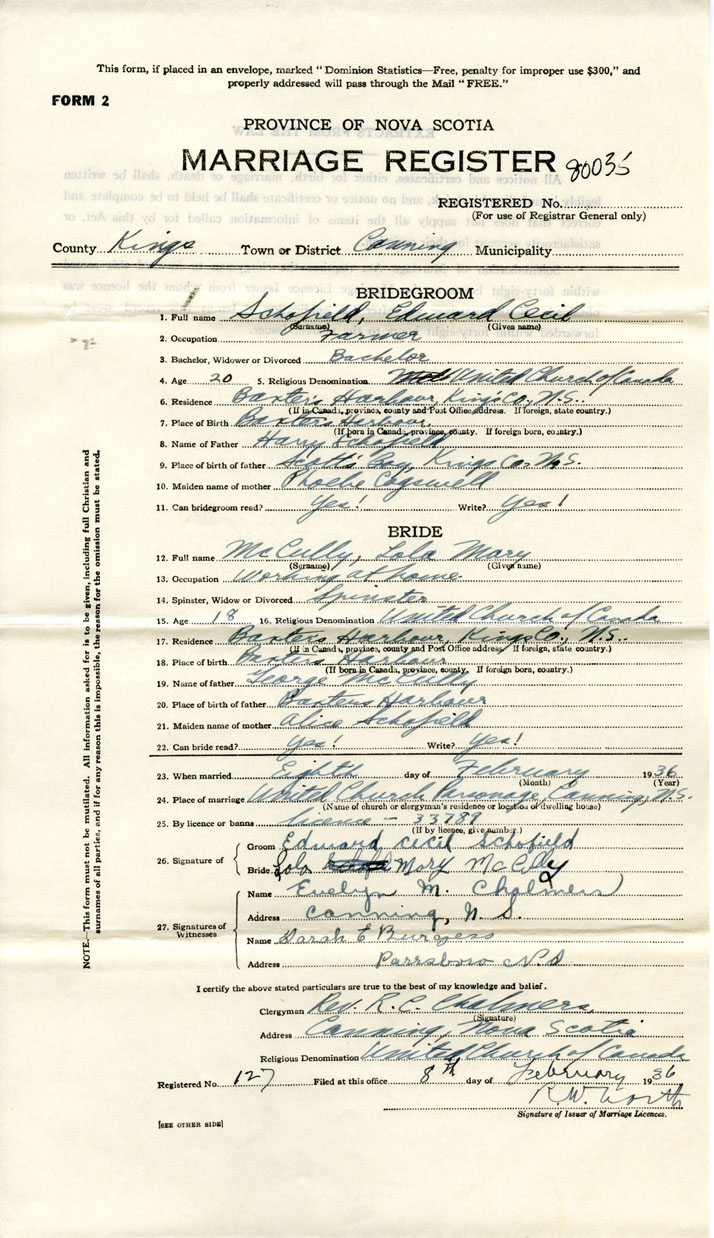 This form, if placed in an envelope, marked "Dominion Statistics—Free, penalty for improper use $300," and
properly addressed will pass through the Mail "FREE."
FORM 2
PROVINCE OF NOVA SCOTIA
MARRIAGE REGISTER 80035
REGISTERED No.
(For use of Registrar General only)
County Kings Town or District Canning Municipality
BRIDEGROOM
1. Full name Schofield, Edward Cecil
(Surname) (Given name)
2. Occupation Farmer
3. Bachelor, Widower or Divorced Bachelor
4. Age 20 5. Religious Denomination United Church of Canada
6. Residence Baxters Harbour, Kings Co., N.S.
(If in Canada, province, county and Post Office address. If foreign, state country.)
7. Place of Birth Baxters Harbour
(If born in Canada, province, county. If foreign born, country.)
8. Name of Father Harry Schofield
9. Place of birth of father Scotts Bay, Kings Co. N.S.
10. Maiden name of mother Phoebe Cogswell
11. Can bridegroom read? Yes! Write? Yes!
BRIDE
12. Full name McCully, Lola Mary
(Surname) (Given name)
13. Occupation Working at home
14. Spinster, Widow or Divorced Spinster
15. Age 18 16. Religious Denomination United Church of Canada
17. Residence Baxters Harbour, Kings Co., N.S.
(If in Canada, province, county and Post Office address. If foreign, state country.)
18. Place of birth Baxters Harbour
(If born in Canada, province, county. If foreign born, country.)
19. Name of father George McCully
20. Place of birth of father Baxters Harbour
21. Maiden name of mother Alice Schofield
22. Can bride read? Yes! Write? Yes!
23. When married Eighth day of February 1936
(Month) (Year)
24. Place of marriage United Church Parsonage, Canning, N.S.
(Name of church or clergyman's residence or location of dwelling house)
25. By licence or banns licence - 33789
(If by licence, give number.)
26. Signature of
Groom Edward Cecil Schofield
Bride Lola Mary McCully
27. Signatures of Witnesses
Name Evelyn M. Chalmers
Address Canning, N.S.
Name Sarah E Burgess
Address Parrsboro N.S
I certify the above stated particulars are true to the best of my knowledge and belief.
Clergyman Rev. R.C. Chalmers
(Signature)
Address Canning, Nova Scotia
Religious Denomination United Church of Canada
Registered No. 127 Filed at this office 8th day of February 1936
R.W. North
Signature of Issuer of Marriage Licences.
[SEE OTHER SIDE]
NOTE.—This form must not be mutilated. All information asked for is to be given, including full Christian and
surnames of all parties, and if for any reason this is impossible, the reason for the omission must be stated.